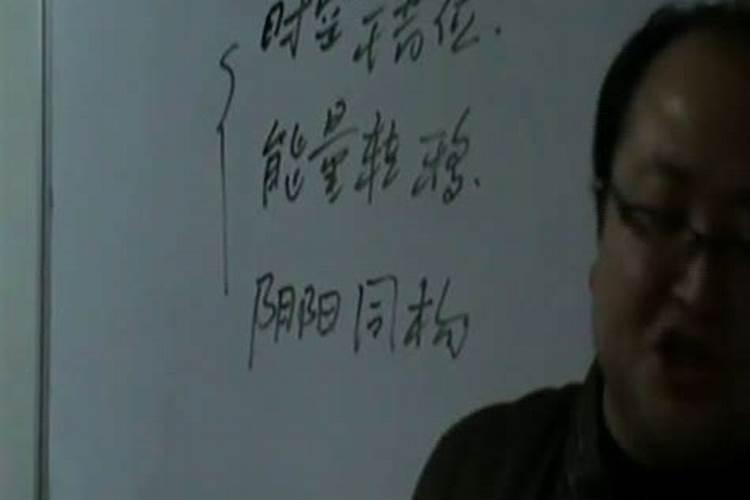 时空错位.
能量转移.
阴阳同构